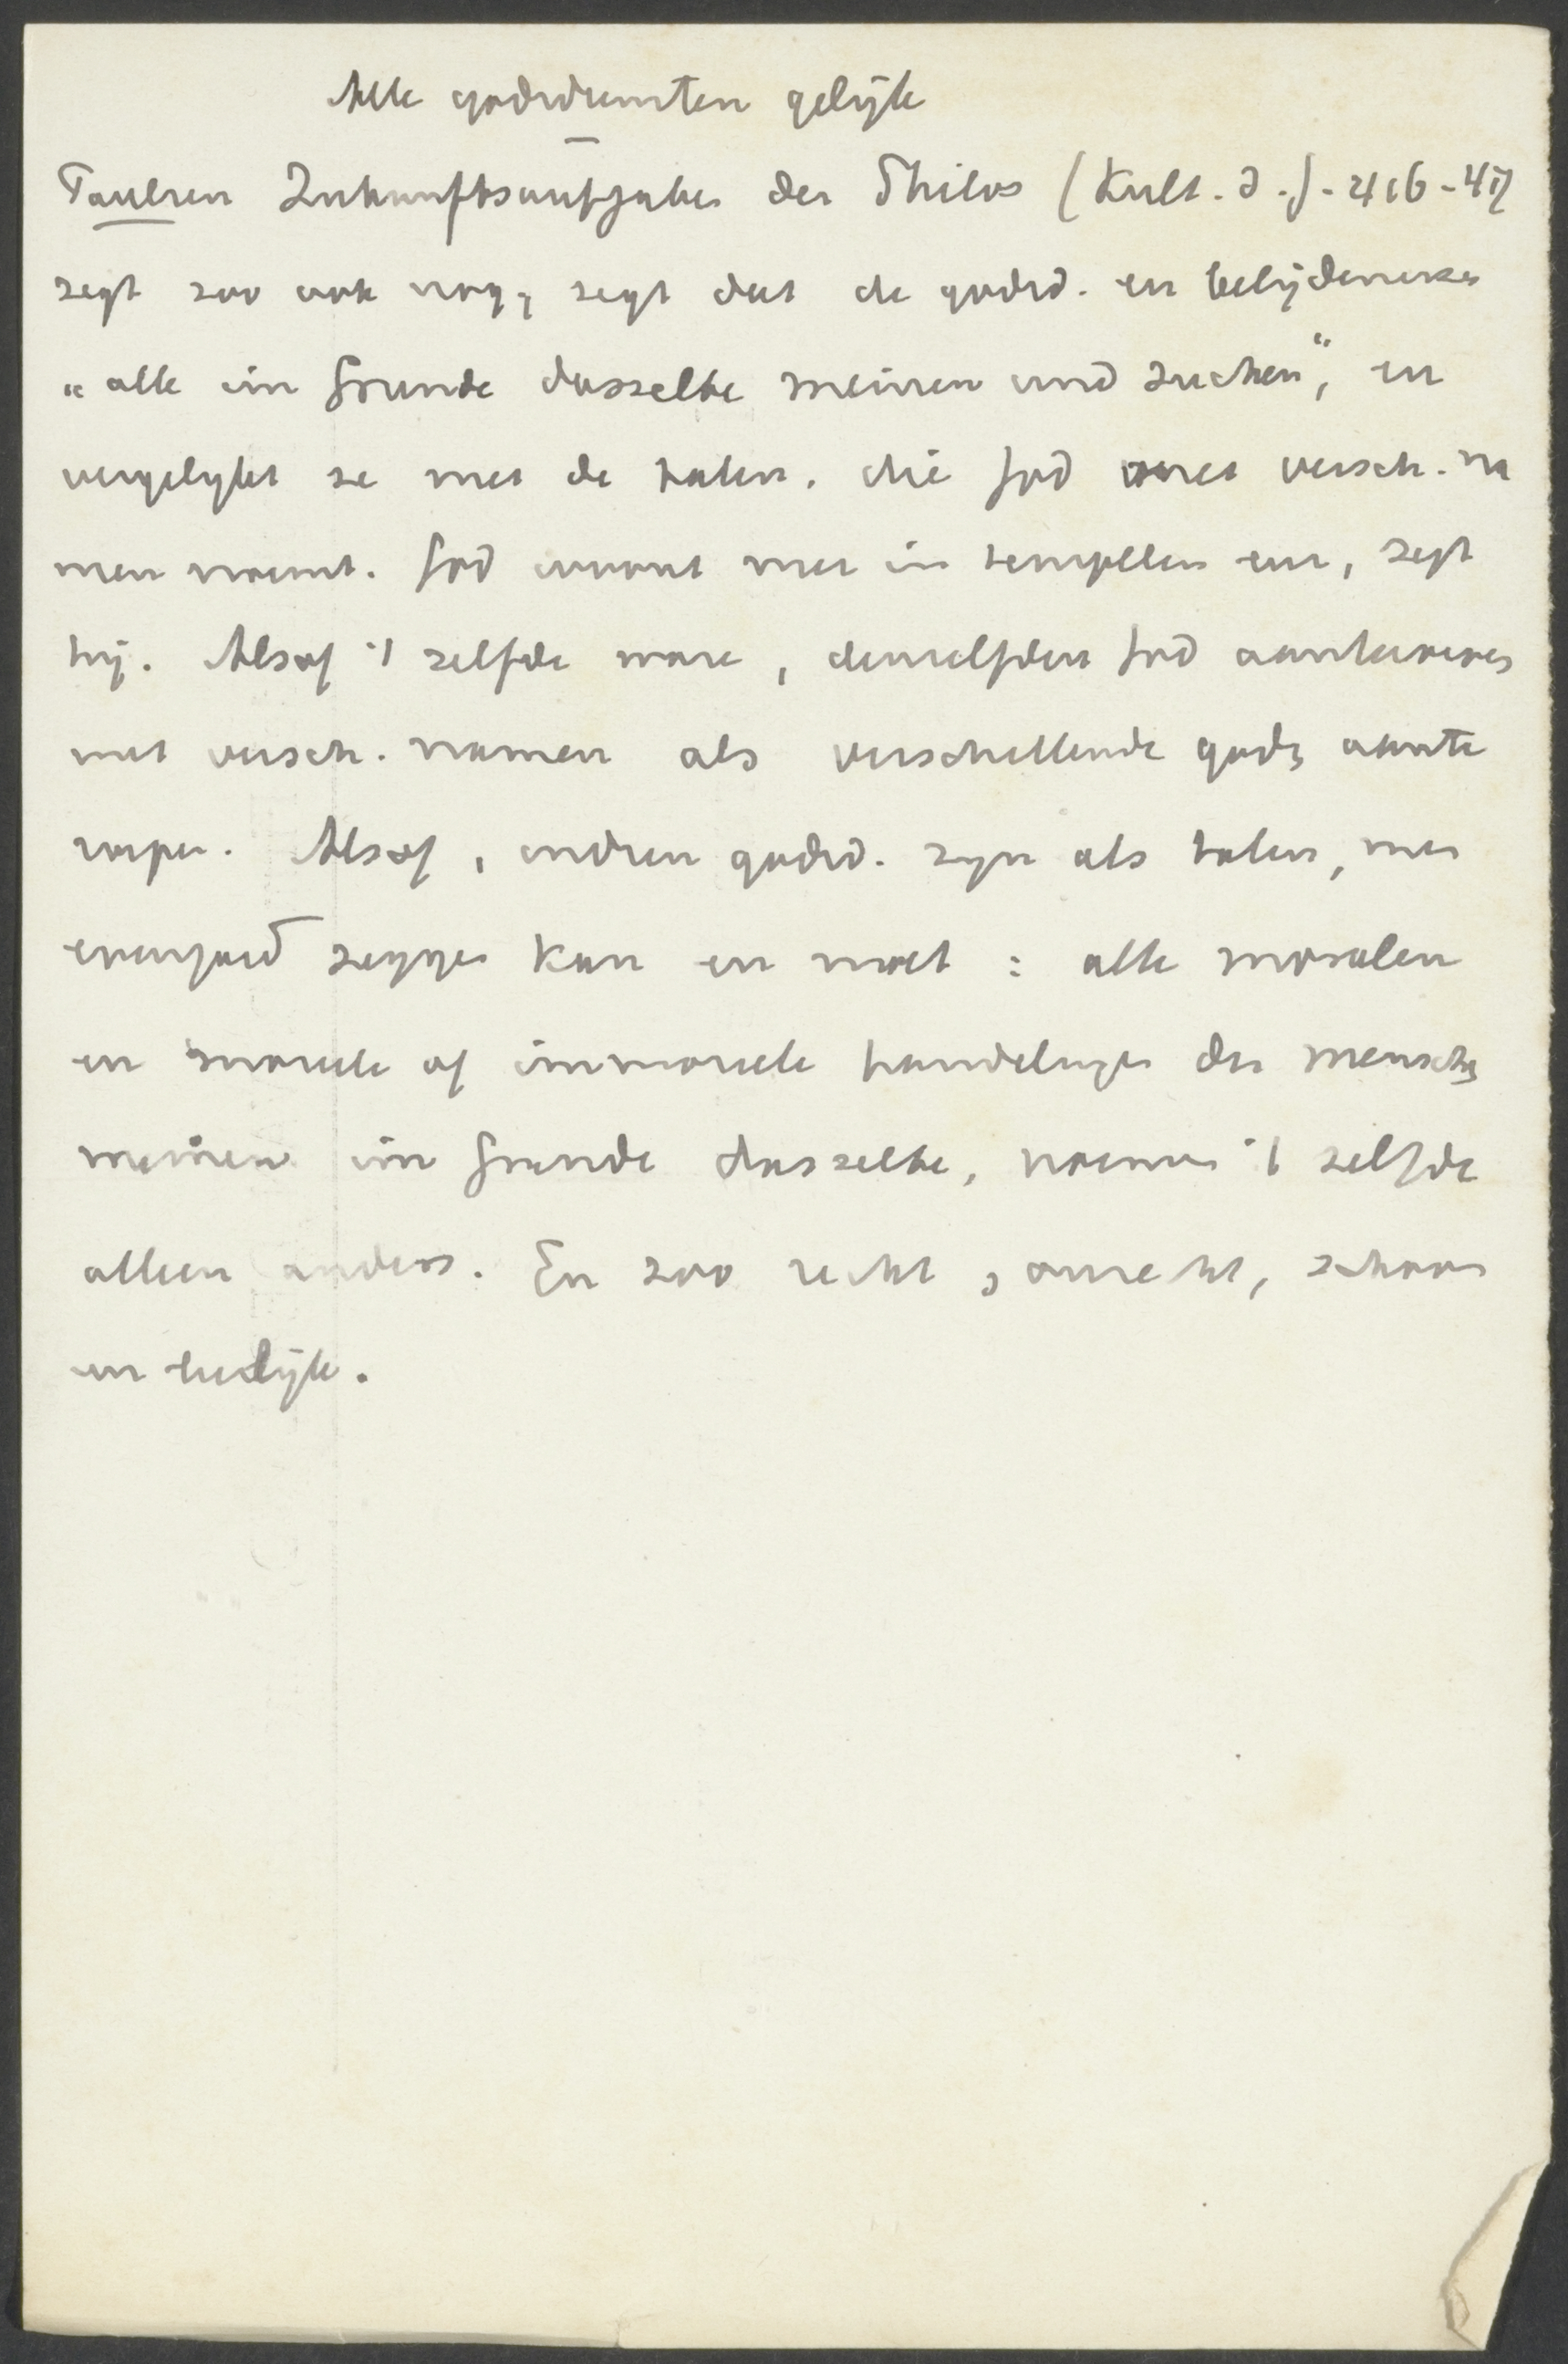 Alle godsdiensten gelijk
Paulsen Zukunftsaufgaben der Philos (Kult. d. .) - 416-417
zegt zoo ook nog, zegt dat de godsd. en belijdenisse
„alle im Grunde dasselbe meinen und suchen“, en
vergelykt ze met de talen, die God met versch. na
men noemt. God woont niet in tempelen enz, zegt
hij. Alsof 't zelfde ware, denzelfden God aanteroepen
met versch. namen als verschillende goden aante
roepen. Alsof, indien godsd. zyn als talen, men
evengoed zeggen kan en moet : alle moralen
en moreele of immoreele handelingen der menschen
meinen im Grunde dasselbe, noemen 't zelfde
alleen anders. En zoo recht, onrecht, schoon
en leelijk.